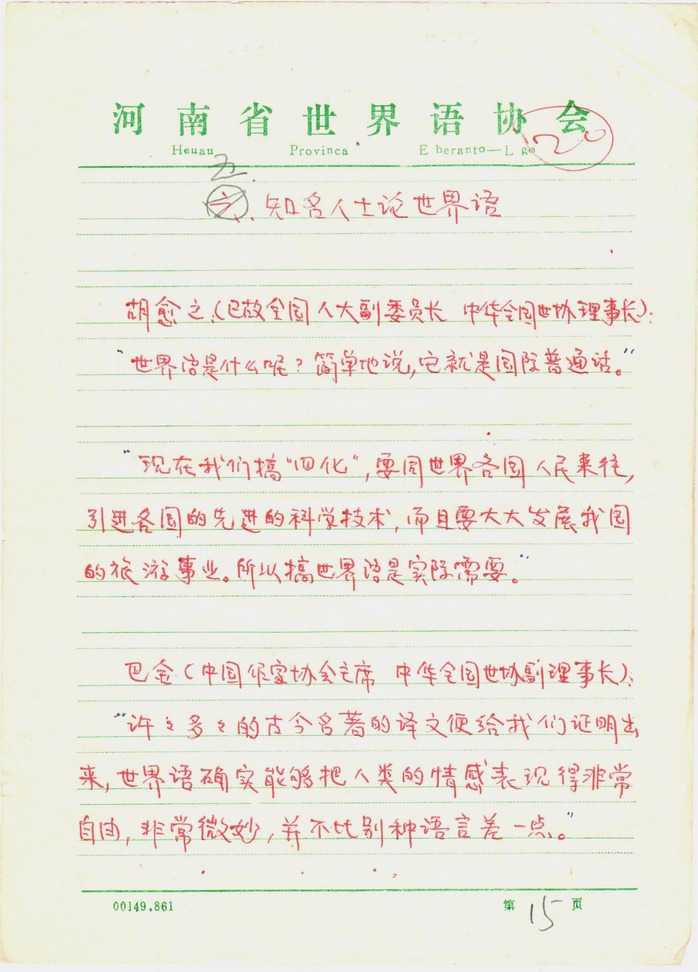 河南省世界语协会
20
Henau Provinca Eberanto—Lgo
五.
六、知名人士论世界语
胡愈之(已故全国人大副委员长 中华全国世协理事长):
“世界语是什么呢?简单地说,它就是国际普通话。”
“现在我们搞“四化”,要同世界各国人民来往,
引进各国的先进的科学技术,而且要大大发展我国
的旅游事业。所以搞世界语是实际需要。”
巴金(中国作家协会主席 中华全国世协副理事长):
“许々多々的古今名著的译文便给我们证明出
来,世界语确实能够把人类的情感表现得非常
自由,非常微妙,并不比别种语言差一点。”
00149.861 第15页